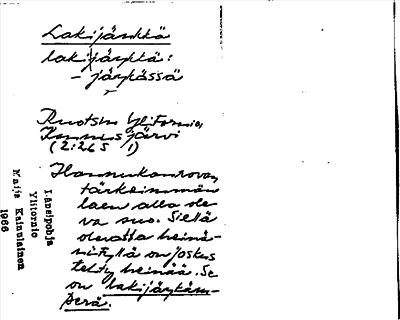 Lakijänkkä
lakijänkkä:
- jänkässä
Ruotsin Ylitornio,
Kuunusjärvi
(2:265 1)
Hannukanrovan,
tärkeimmän
laen alla ole
va suo. Siellä
olevalla heinä-
niityllä on joskus
tehty heinää. Se
on lakijänkäm-
perä.
Länsipohja
Ylitornio
Maija Kainulainen
1966